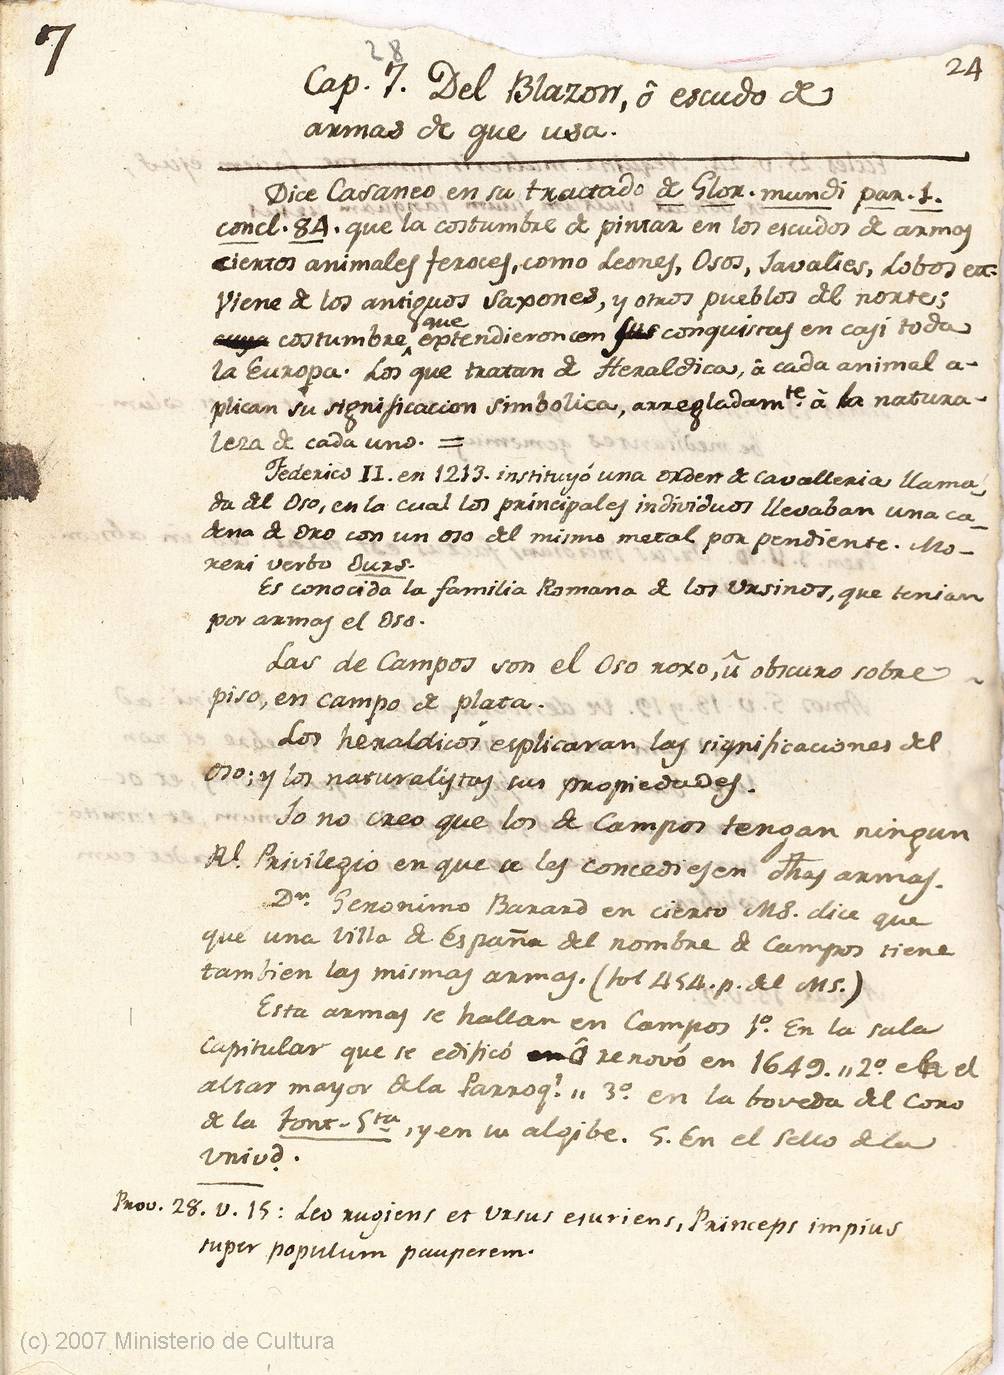 7
28
24
Cap. 7. Del Blazon, ô escudo de
armas de que usa.
Dice Casaneo en su tractado de Glor. mundi par. 1.
concl. 84. que la costumbre de pintar en los escudos de armas
ciertos animales feroces, como Leones, Osos, Javalies, Lobos etc.
viene de los antiguos Saxones, y otros pueblos del norte;
cuya costumbre que extendieron con sus conquistas en casi toda
la Europa. Los que tratan de Heraldica, â cada animal a-
plican su significacion simbolica, arregladamte. â la natura-
leza de cada uno. =
Federico II. en 1213. instituyó una orden de cavalleria llama-
da del Oso, en la cual los principales individuos llevaban una ca-
dena de oro con un oso del mismo metal por pendiente. Mo-
reri verbo Ours.
Es conocida la familia Romana de los Ursinos, que tenian
por armas el Oso.
Las de Campos son el Oso roxo, û obscuro sobre
piso, en campo de plata.
Los heraldicos esplicaran las significaciones del
oso; y los naturalistas sus propiedades.
Io no creo que los de Campos tengan ningun
Rl. Privilegio en que se les concediesen dhas armas.
Dn. Geronimo Barard en cierto MS. dice que
que una Villa de España del nombre de Campos tiene
tambien las mismas armas. (fol 454. p. del Ms.)
Esta armas se hallan en Campos 1º. En la sala
Capitular que se edificó en ô renovó en 1649. ,, 2º. el
altar mayor dela Parroql. ,, 3º. en la boveda del Coro
de la Font-Sta., y en su algibe. 5. En el Sello de la
Univd.
Prov. 28. v. 15: Leo rugiens et Ursus esuriens, Princeps impius
super populum pauperem.
(c) 2007 Ministerio de Cultura